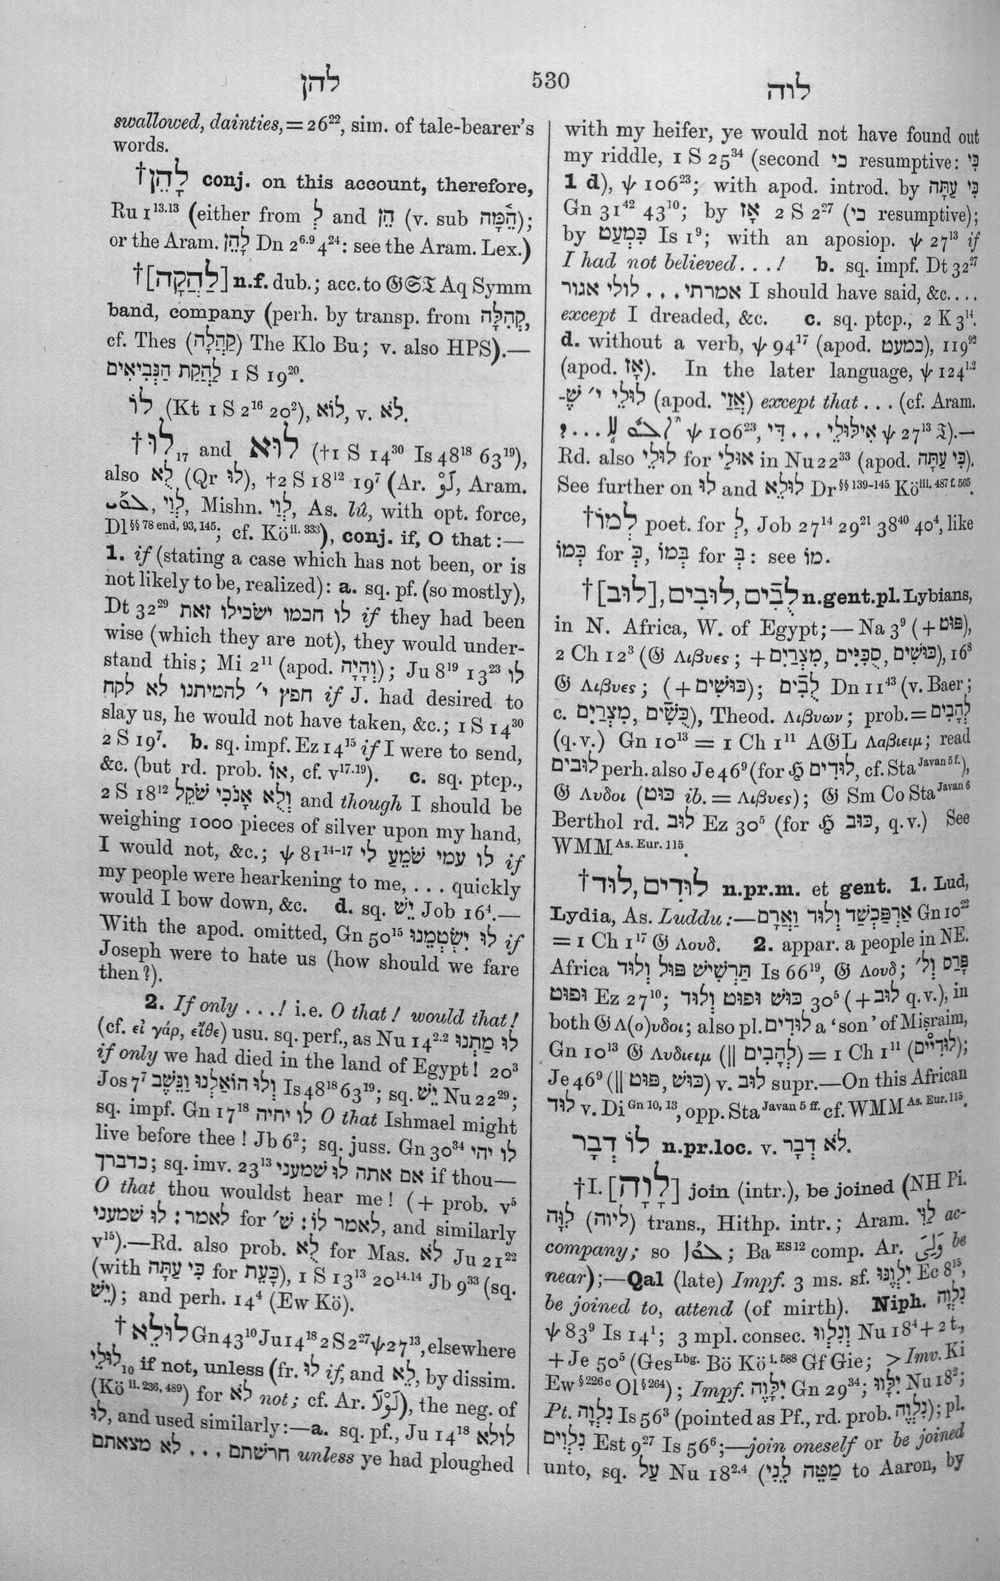 להן
530
לוה
swallowed, dainties, = 26²², sim. of tale-bearer's
words.
†לָהֵן conj. on this account, therefore,
Ru 1¹³·¹³ (either from לְ and הֵן (v. sub הֵ֫מָּה);
or the Aram. לָהֵן Dn 2⁶·⁹ 4²⁴: see the Aram. Lex.)
†[לַהֲקָה] n.f. dub.; acc. to 𝔊𝔖𝔗 Aq Symm
band, company (perh. by transp. from קְהִלָּה,
cf. Thes (קְהִלָּה) The Klo Bu; v. also HPS).—
לַהֲקַת הַנְּבִיאִים 1 S 19²⁰.
לוֹ (Kt 1 S 2¹⁶ 20²), לוֹא, v. לֹא.
†לוּ₁₇ and לוּא (†1 S 14³⁰ Is 48¹⁸ 63¹⁹),
also לֻא (Qr לוּ), †2 S 18¹² 19⁷ (Ar. لَوْ, Aram.
לְוַי, Mishn. לְוַי, As. lû, with opt. force,
Dl §§ 78 end, 93, 145; cf. Kö ii. 333), conj. if, O that:—
1. if (stating a case which has not been, or is
not likely to be, realized): a. sq. pf. (so mostly),
Dt 32²⁹ לו חכמו ישכילו זאת if they had been
wise (which they are not), they would under-
stand this; Mi 2¹¹ (apod. וְהָיָה); Ju 8¹⁹ 13²³ לוּ
חפץ י׳ להמיתנו לא לקח if J. had desired to
slay us, he would not have taken, &c.; 1 S 14³⁰
2 S 19⁷. b. sq. impf. Ez 14¹⁵ if I were to send,
&c. (but rd. prob. אוֹ, cf. v¹⁷·¹⁹). c. sq. ptcp.,
2 S 18¹² וְלֻא אָנֹכִי שֹׁקֵל and though I should be
weighing 1000 pieces of silver upon my hand,
I would not, &c.; ψ 81¹⁴⁻¹⁷ לוּ עמי שֹׁמֵעַ לִי if
my people were hearkening to me, . . . quickly
would I bow down, &c. d. sq. יֵשׁ Job 16⁴.—
With the apod. omitted, Gn 50¹⁵ לוּ יִשְׂטְמֵנוּ if
Joseph were to hate us (how should we fare
then?).
2. If only . . .! i.e. O that! would that!
(cf. εἰ γάρ, εἴθε) usu. sq. perf., as Nu 14²·² לוּ מַתְנוּ
if only we had died in the land of Egypt! 20³
Jos 7⁷ וְלוּ הוֹאַלְנוּ וַנֵּשֶׁב Is 48¹⁸ 63¹⁹; sq. יֵשׁ Nu 22²⁹;
sq. impf. Gn 17¹⁸ לוּ יחיה O that Ishmael might
live before thee! Jb 6²; sq. juss. Gn 30³⁴ לוּ יהי
כדברך; sq. imv. 23¹³ אם אתה לוּ שמעני if thou—
O that thou wouldst hear me! (+ prob. v⁵
לאמר: לוּ שמעני for לאמר לוֹ: שׁ׳, and similarly
v¹⁵).—Rd. also prob. לֻא for Mas. לֹא Ju 21²²
(with כִּי עַתָּה for כָּעֵת), 1 S 13¹³ 20¹⁴·¹⁴ Jb 9³³ (sq.
יֵשׁ); and perh. 14⁴ (Ew Kö).
†לוּלֵא Gn 43¹⁰ Ju 14¹⁸ 2 S 2²⁷ ψ 27¹³, elsewhere
לוּלֵי₁₀ if not, unless (fr. לוּ if, and לֵא, by dissim.
(Kö ii. 236, 489) for לֹא not; cf. Ar. لَوْلَا), the neg. of
לוּ, and used similarly:—a. sq. pf., Ju 14¹⁸ לולא
חרשתם . . . לא מצאתם unless ye had ploughed
with my heifer, ye would not have found out
my riddle, 1 S 25³⁴ (second כִּי resumptive: כִּי
1 d), ψ 106²³; with apod. introd. by כִּי עַתָּה
Gn 31⁴² 43¹⁰; by אָז 2 S 2²⁷ (כִּי resumptive);
by כִּמְעַט Is 1⁹; with an aposiop. ψ 27¹³ if
I had not believed . . .! b. sq. impf. Dt 32²⁷
אמרתי . . . לולי אגור I should have said, &c. . . .
except I dreaded, &c. c. sq. ptcp., 2 K 3¹⁴.
d. without a verb, ψ 94¹⁷ (apod. כמעט), 119⁹²
(apod. אָז). In the later language, ψ 124¹·²
לוּלֵי י׳ שֶׁ־ (apod. אֲזַי) except that . . . (cf. Aram.
ψ 106²³, אִילוּלֵי . . . דִּי ψ 27¹³ 𝔗).—
Rd. also לוּלֵי for אוּלַי in Nu 22³³ (apod. כִּי עַתָּה).
See further on לוּ and לוּלֵא Dr §§ 139–145 Kö iii. 487 f. 565.
†לְמוֹ poet. for לְ, Job 27¹⁴ 29²¹ 38⁴⁰ 40⁴, like
כְּמוֹ for כְּ, בְּמוֹ for בְּ: see מוֹ.
†[לוּב], לוּבִים, לֻבִּים n.gent.pl. Lybians,
in N. Africa, W. of Egypt;—Na 3⁹ (+פּוּט),
2 Ch 12³ (𝔊 Λιβυες; +מִצְרַיִם, סֻכִּיִּים, כּוּשִׁים), 16⁸
𝔊 Λιβυες; (+כּוּשִׁים); לֻבִים Dn 11⁴³ (v. Baer;
c. מִצְרַיִם, כֻּשִׁים), Theod. Λιβυων; prob. = לְהָבִים
(q.v.) Gn 10¹³ = 1 Ch 1¹¹ A𝔊L Λαβιειμ; read
לוּבים perh. also Je 46⁹ (for ℌ לוּדִים, cf. Sta Javan 5 f.),
𝔊 Λυδοι (פּוּט ib. = Λιβυες); 𝔊 Sm Co Sta Javan 6
Berthol rd. לוּב Ez 30⁵ (for ℌ כּוּב, q.v.) See
WMM As. Eur. 115.
†לוּד, לוּדִים n.pr.m. et gent. 1. Lud,
Lydia, As. Luddu:—אַרְפַּכְשַׁד וְלוּד וַאֲרָם Gn 10²²
= 1 Ch 1¹⁷ 𝔊 Λουδ. 2. appar. a people in NE.
Africa תַּרְשִׁישׁ פּוּל וְלוּד Is 66¹⁹, 𝔊 Λουδ; פָּרַס וְל׳
וּפוּט Ez 27¹⁰; כּוּשׁ וּפוּט וְלוּד 30⁵ (+לוּב q.v.), in
both 𝔊 Λ(ο)υδοι; also pl. לוּדִים a 'son' of Miṣraim,
Gn 10¹³ 𝔊 Λυδιειμ (|| לְהָבִים) = 1 Ch 1¹¹ (לוּדִיִּים);
Je 46⁹ (|| כּוּשׁ, פּוּט) v. לוּב supr.—On this African
לוּד v. Di Gn 10, 13, opp. Sta Javan 5 ff. cf. WMM As. Eur. 115.
לוֹ דְבָר n.pr.loc. v. לֹא דְבָר.
†I. [לָוָה] join (intr.), be joined (NH Pi.
לִוָּה (ליוה) trans., Hithp. intr.; Aram. לְוִי ac-
company; so ; Ba ES 12 comp. Ar. وَلِيَ be
near);—Qal (late) Impf. 3 ms. sf. יִלְוֶנּוּ Ec 8¹⁵,
be joined to, attend (of mirth). Niph. נִלְוָה
ψ 83⁹ Is 14¹; 3 mpl. consec. וְנִלְווּ Nu 18⁴ + 2 t.,
+ Je 50⁵ (Ges Lbg. Bö Kö i. 588 Gf Gie; > Imv. Ki
Ew § 226 c Ol § 264); Impf. יִלָּוֶה Gn 29³⁴; יִלָּווּ Nu 18²;
Pt. נִלְוָה Is 56³ (pointed as Pf., rd. prob. נִלְוֶה); pl.
נִלְוִים Est 9²⁷ Is 56⁶;—join oneself or be joined
unto, sq. עַל Nu 18²·⁴ (מַטֵּה לֵוִי to Aaron, by